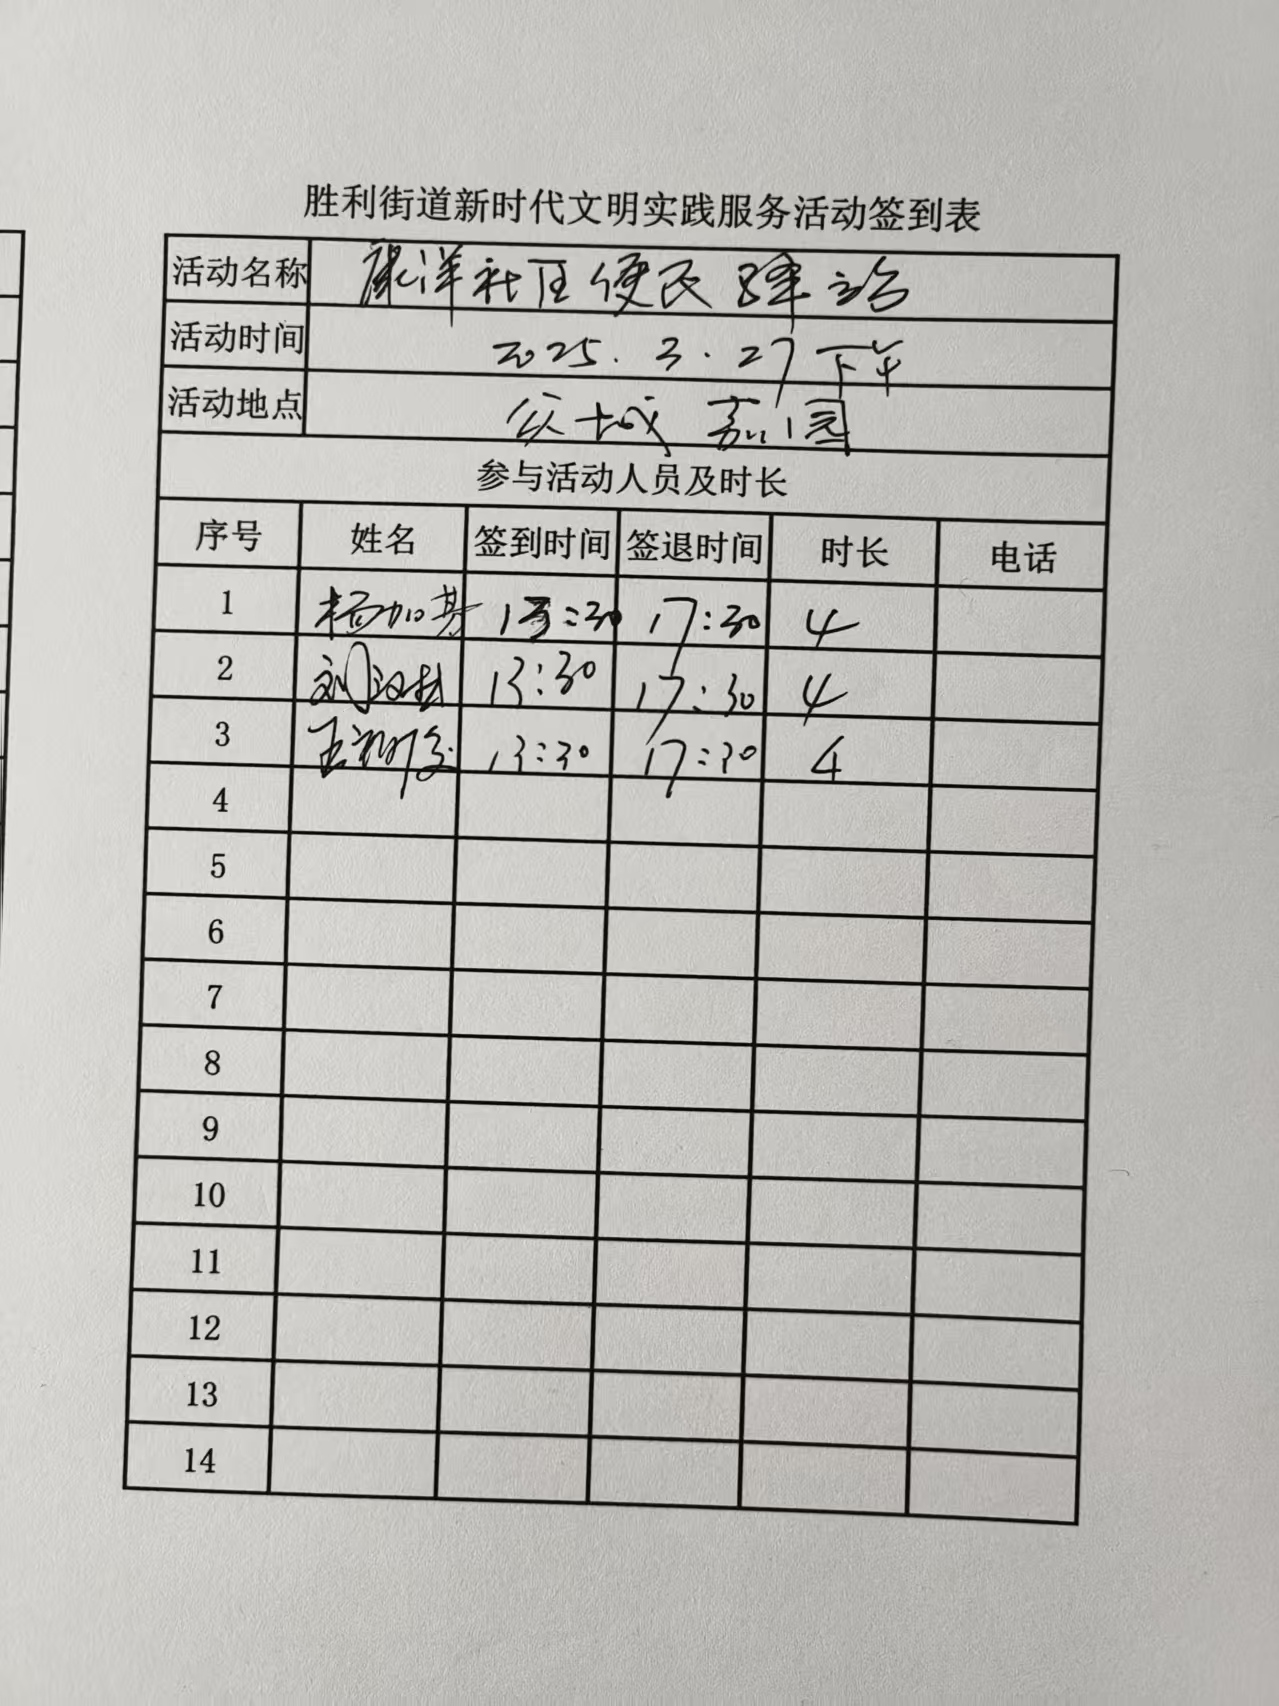 胜利街道新时代文明实践服务活动签到表
活动名称 康洋社区便民驿站
活动时间 2025.3.27下午
活动地点 城嘉园
参与活动人员及时长
序号 姓名 签到时间 签退时间 时长 电话
1 杨加基 13:30 17:30 4
2 刘汉 13:30 17:30 4
3 王 13:30 17:30 4
4
5
6
7
8
9
10
11
12
13
14